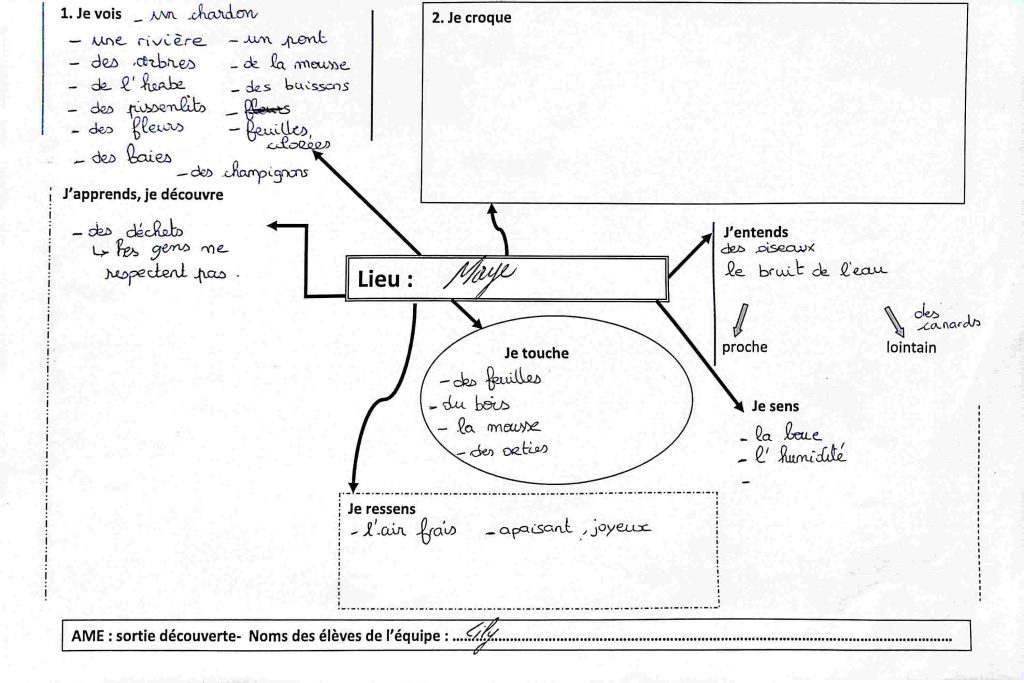 1. Je vois - un chardon
- une rivière - un pont
- des arbres - de la mousse
- de l'herbe - des buissons
- des pissenlits - fleurs
- des fleurs - feuilles,
colorées
- des baies
- des champignons
2. Je croque
J'apprends, je découvre
- des déchets
↳ Les gens ne
respectent pas.
Lieu : Maye
J'entends
des oiseaux
le bruit de l'eau
proche
des
canards
lointain
Je touche
- des feuilles
- du bois
- la mousse
- des orties
Je sens
- la boue
- l'humidité
-
Je ressens
- l'air frais - apaisant, joyeux
AME : sortie découverte- Noms des élèves de l'équipe : Lily